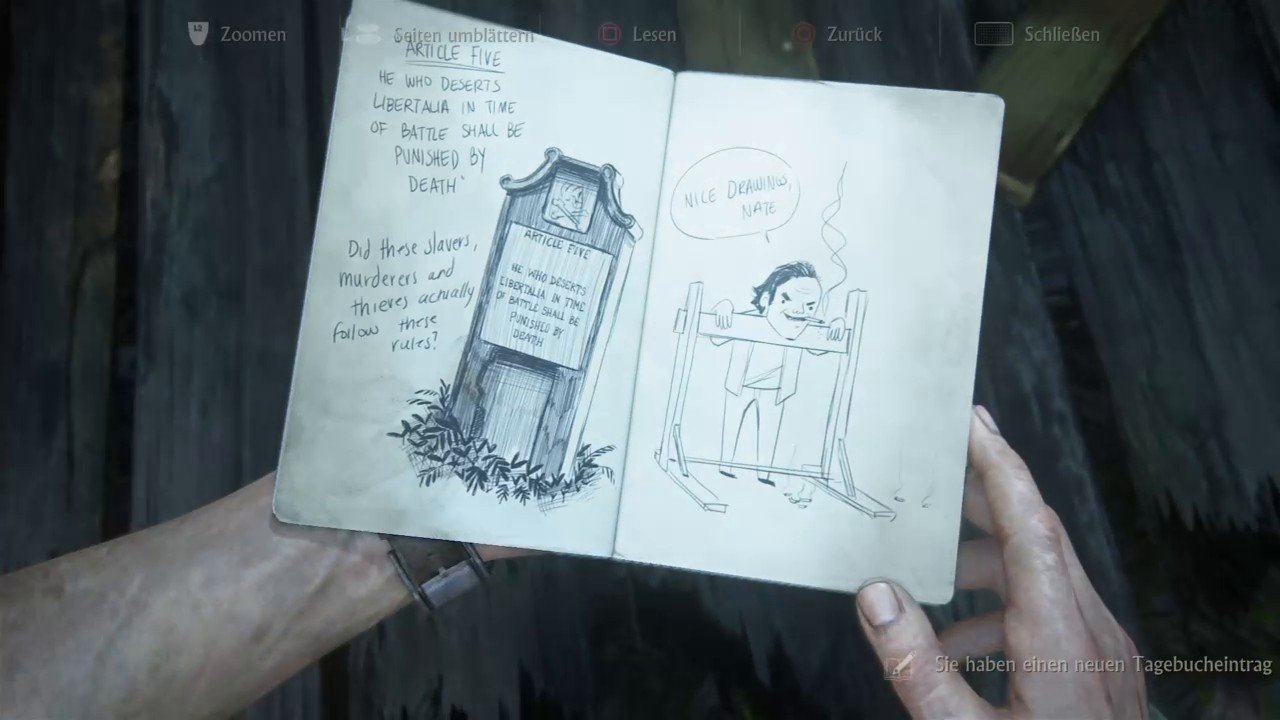 L2 Zoomen
Seiten umblättern
Lesen
Zurück
Schließen
ARTICLE FIVE
HE WHO DESERTS
LIBERTALIA IN TIME
OF BATTLE SHALL BE
PUNISHED BY
DEATH"
Did these slavers,
murderers and
thieves actually
follow these
rules?
ARTICLE FIVE
HE WHO DESERTS
LIBERTALIA IN TIME
OF BATTLE SHALL BE
PUNISHED BY
DEATH
NICE DRAWINGS,
NATE
Sie haben einen neuen Tagebucheintrag